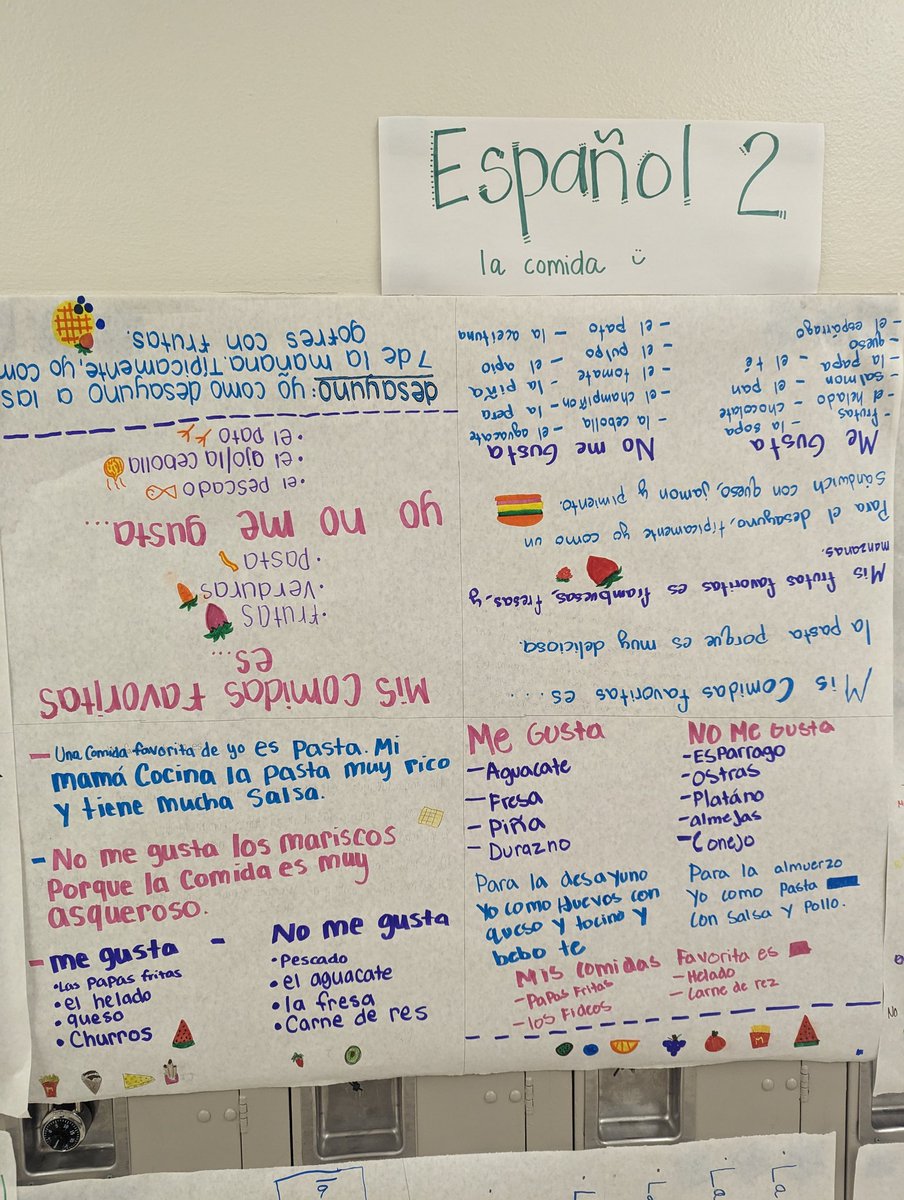 Español 2
la comida
Mis Comidas Favoritas
es...
·frutas
·verduras
·pasta
yo no me gusta...
·el pescado
·el ajo/la cebolla
·el pato
desayuno: yo como desayuno a las
7 de la mañana. Típicamente, yo com
gofres con frutas.
Mis Comidas favoritas es ....
la pasta porque es muy deliciosa.
Mis frutas favoritas es frambuesas, fresas, y
manzanas.
Para el desayuno, típicamente, yo como un
Sandwich con queso, jamon y pimiento.
Me Gusta
- frutas - la sopa
- el helado - chocolate
- salmon - el pan
- la papa - el té
- queso
- el espárrago
No me Gusta
- la cebolla - el aguacate
- el champiñon - la pera
- el tomate - la piña
- el pulpo - el apio
- el pato - la aceituna
- Una comida favorita de yo es pasta. Mi
mamá cocina la pasta muy rico
y tiene mucha salsa.
- No me gusta los mariscos
Porque la comida es muy
asqueroso.
- me gusta -
• Las Papas fritas
• el helado
• queso
• Churros
No me gusta
• Pescado
• el aguacate
• la fresa
• Carne de res
Me Gusta
- Aguacate
- Fresa
- Piña
- Durazno
No Me Gusta
- Esparrago
- Ostras
- Platáno
- almejas
- Conejo
Para la desayuno
Yo como Huevos con
queso y tocino y
bebo te
Para la almuerzo
Yo como Pasta
con salsa y Pollo.
Mis comidas Favorita es
- Papas Fritas
- Los Fideos
- Helado
- Carne de rez